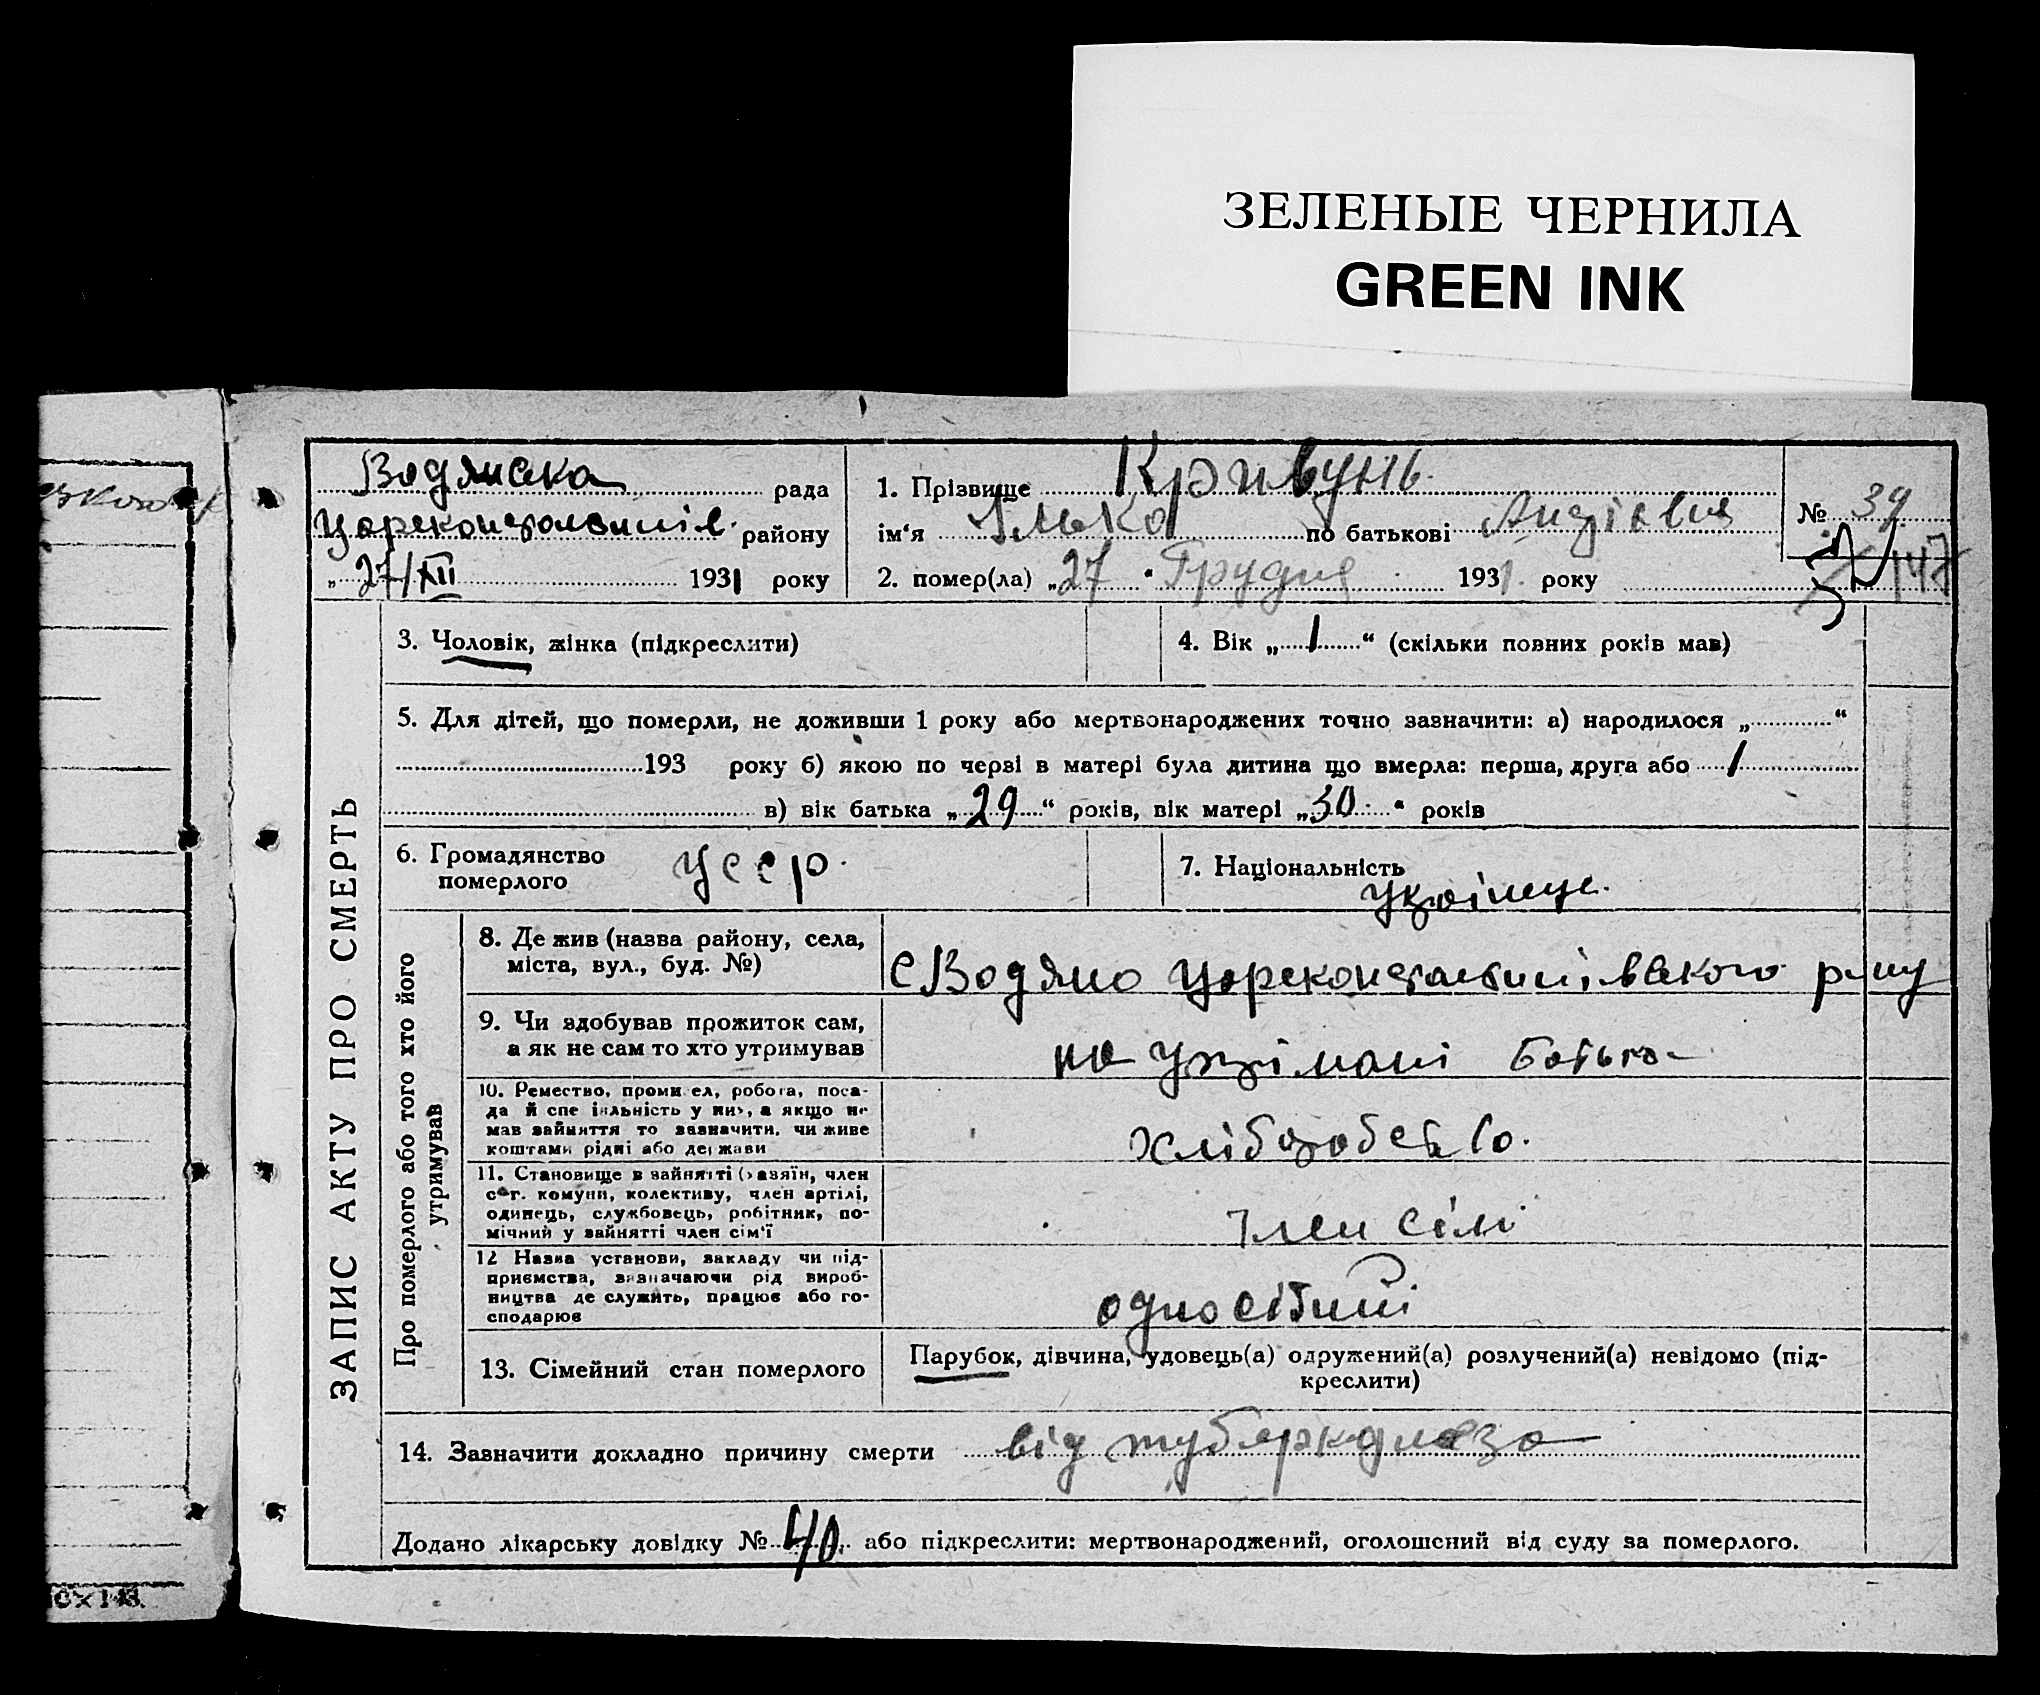 ЗЕЛЕНЫЕ ЧЕРНИЛА
GREEN INK
Водянска рада
Царсконстантинів. району
„27/XII 1931 року
1. Прізвище Кривунь.
ім‘я Ілько по батькові
2. помер(ла) „27“ Грудня 1931 року
№ 39
147
ЗАПИС АКТУ ПРО СМЕРТЬ
3. Чоловік, жінка (підкреслити)
4. Вік „1“ (скільки повних років мав)
5. Для дітей, що померли, не доживши 1 року або мертвонароджених точно зазначити: а) народилося „ “
193 року б) якою по черзі в матері була дитина що вмерла: перша, друга або 1
в) вік батька „29“ років, вік матері „30“ років
6. Громадянство
померлого
УССР.
7. Національність
Про померлого або того хто його
утримував
8. Де жив (назва району, села,
міста, вул., буд. №)
с Водяно Царсконстантинівського р-ну
9. Чи здобував прожиток сам,
а як не сам то хто утримував
на батька
10. Ремество, промисел, робота, поса-
да й спеціяльність у них, а якщо не
мав зайняття то зазначити, чи живе
коштами рідні або держави
11. Становище в зайнятті (хазяїн, член
с-г. комуни, колективу, член артілі,
одинець, службовець, робітник, по-
мічний у зайнятті член сім‘ї
член сімї
12 Назва установи, закладу чи під-
приємства, зазначаючи рід вироб-
ництва де служить, працює або го-
сподарює
13. Сімейний стан померлого
Парубок, дівчина, удовець(а) одружений(а) розлучений(а) невідомо (під-
креслити)
14. Зазначити докладно причину смерти від туберкульоза
Додано лікарську довідку № 40. або підкреслити: мертвонароджений, оголошений від суду за померлого.